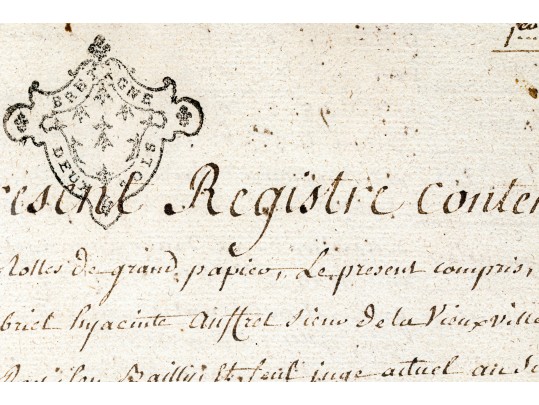 BRETAGNE
DEUX SOLS
résent Registre conten
Rolles de grand papier, Le present compris,
briel hyacinte Auffret sieur de la Vieuxville
Bailly et seul juge actuel au